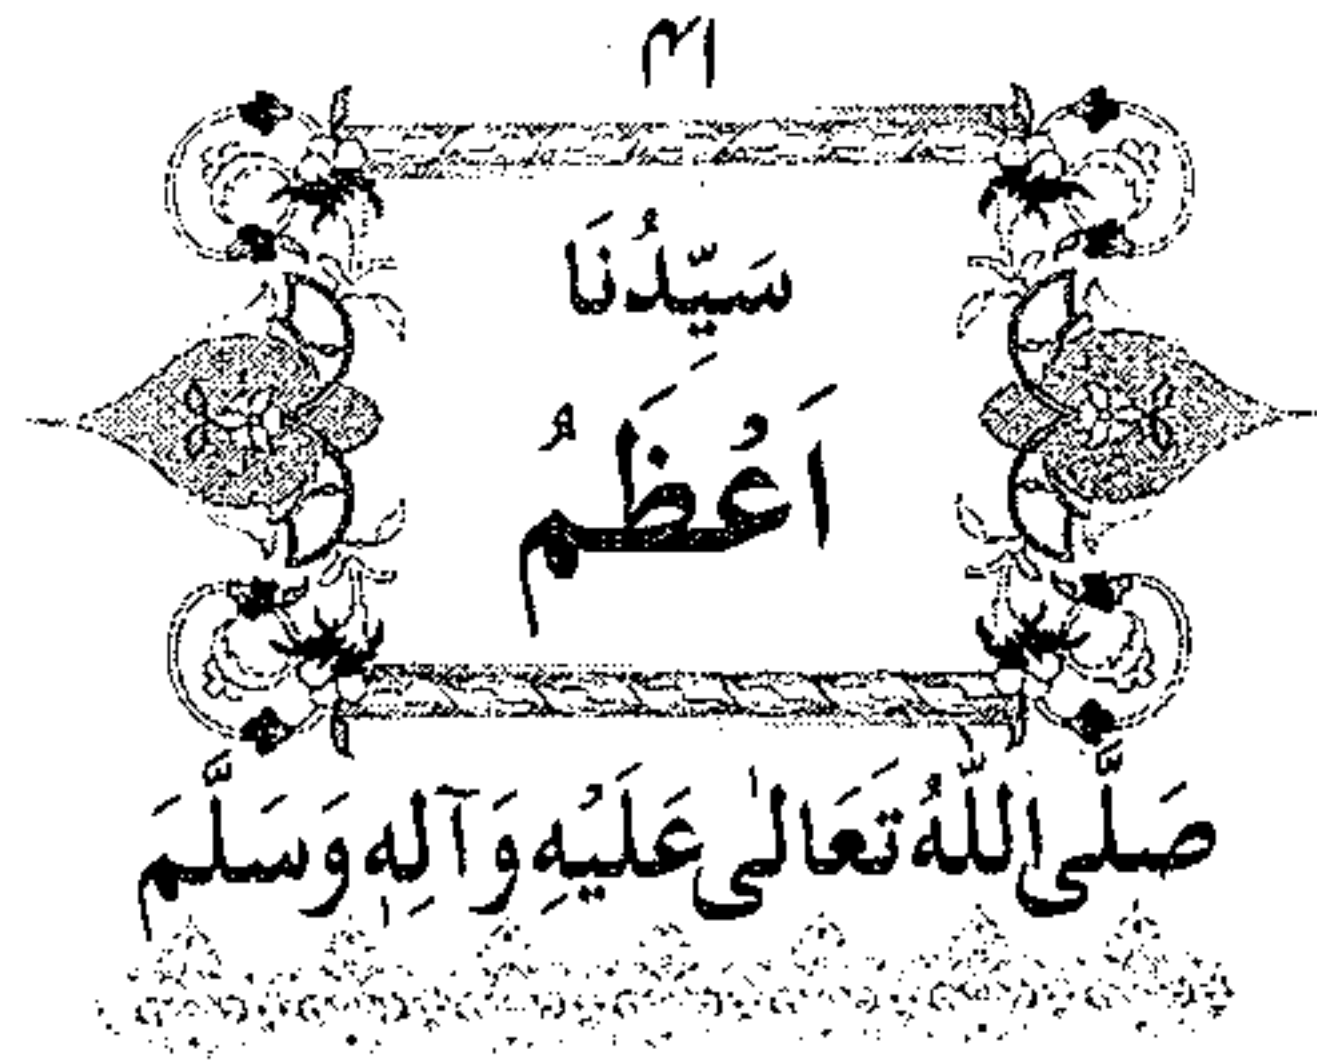 ۴۱
سَيِّدُنَا
اَعْظَمُ
صَلَّى اللّٰهُ تَعَالٰى عَلَيْهِ وَآلِهٖ وَسَلَّمَ